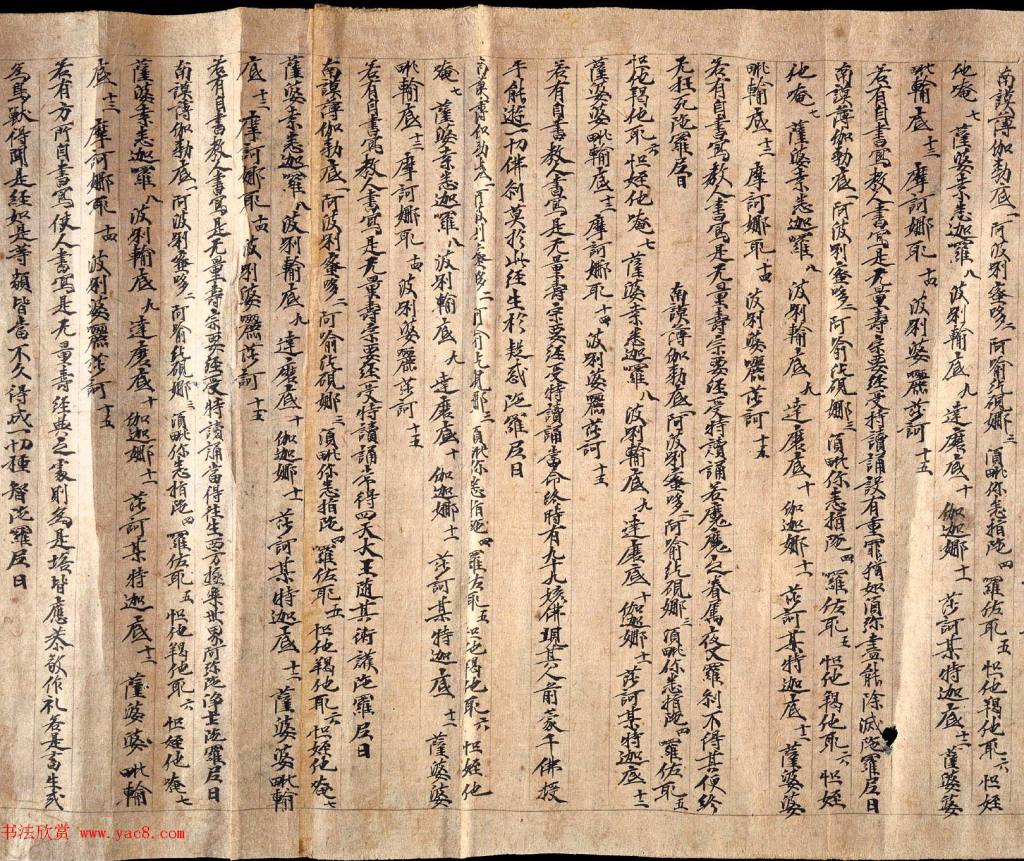 南謨薄伽勃底一阿波唎蜜哆二阿喻紇硯娜三須毗你悉指陀四羅佐耶五怛他羯他耶六怛姪
他唵七薩婆桑悉迦羅八波唎輸底九達磨底十伽迦娜十一莎訶某特迦底十二薩婆婆
毗輸底十三摩訶娜耶十四波唎婆囇莎訶十五
若有自書寫教人書寫是无量壽宗要經受持讀誦設有重罪猶如須弥盡能除滅陀羅尼曰
南謨薄伽勃底一阿波唎蜜哆二阿喻紇硯娜三須毗你悉指陀四羅佐耶五怛他羯他耶六怛姪
他唵七薩婆桑悉迦羅八波唎輸底九達磨底十伽迦娜十一莎訶某特迦底十二薩婆婆
毗輸底十三摩訶娜耶十四波唎婆囇莎訶十五
若有自書寫教人書寫是无量壽宗要經受持讀誦若魔魔之眷属夜叉羅剎不得其便終
无枉死陀羅尼曰 南謨薄伽勃底一阿波唎蜜哆二阿喻紇硯娜三須毗你悉指陀四羅佐耶五
怛他羯他耶六怛姪他唵七薩婆桑悉迦羅八波唎輸底九達磨底十伽迦娜十一莎訶某特迦底十二
薩婆婆毗輸底十三摩訶娜耶十四波唎婆囇莎訶十五
若有自書寫教人書寫是无量壽宗要經受持讀誦當命終時有九十九垓佛現其人前蒙千佛授
手能遊一切佛剎莫於此經生於疑惑陀羅尼曰
南謨薄伽勃底一阿波唎蜜哆二阿喻紇硯娜三須毗你悉指陀四羅佐耶五怛他羯他耶六怛姪他
唵七薩婆桑悉迦羅八波唎輸底九達磨底十伽迦娜十一莎訶某特迦底十二薩婆婆
毗輸底十三摩訶娜耶十四波唎婆囇莎訶十五
若有自書寫教人書寫是无量壽宗要經受持讀誦常得四天大王随其衛護陀羅尼曰
南謨薄伽勃底一阿波唎蜜哆二阿喻紇硯娜三須毗你悉指陀四羅佐耶五怛他羯他耶六怛姪他唵七
薩婆桑悉迦羅八波唎輸底九達磨底十伽迦娜十一莎訶某特迦底十二薩婆婆毗輸
底十三摩訶娜耶十四波唎婆囇莎訶十五
若有自書寫教人書寫是无量壽宗要經受持讀誦當得往生西方極樂世界阿弥陀淨土陀羅尼曰
南謨薄伽勃底一阿波唎蜜哆二阿喻紇硯娜三須毗你悉指陀四羅佐耶五怛他羯他耶六怛姪他唵七
薩婆桑悉迦羅八波唎輸底九達磨底十伽迦娜十一莎訶某特迦底十二薩婆婆毗輸
底十三摩訶娜耶十四波唎婆囇莎訶十五
若有方所自書寫使人書寫是无量壽經典之處則為是塔皆應恭敬作礼若是畜生或
為鳥獸得聞是經如是等類皆當不久得成一切種智陀羅尼曰
书法欣赏 www.yac8.com